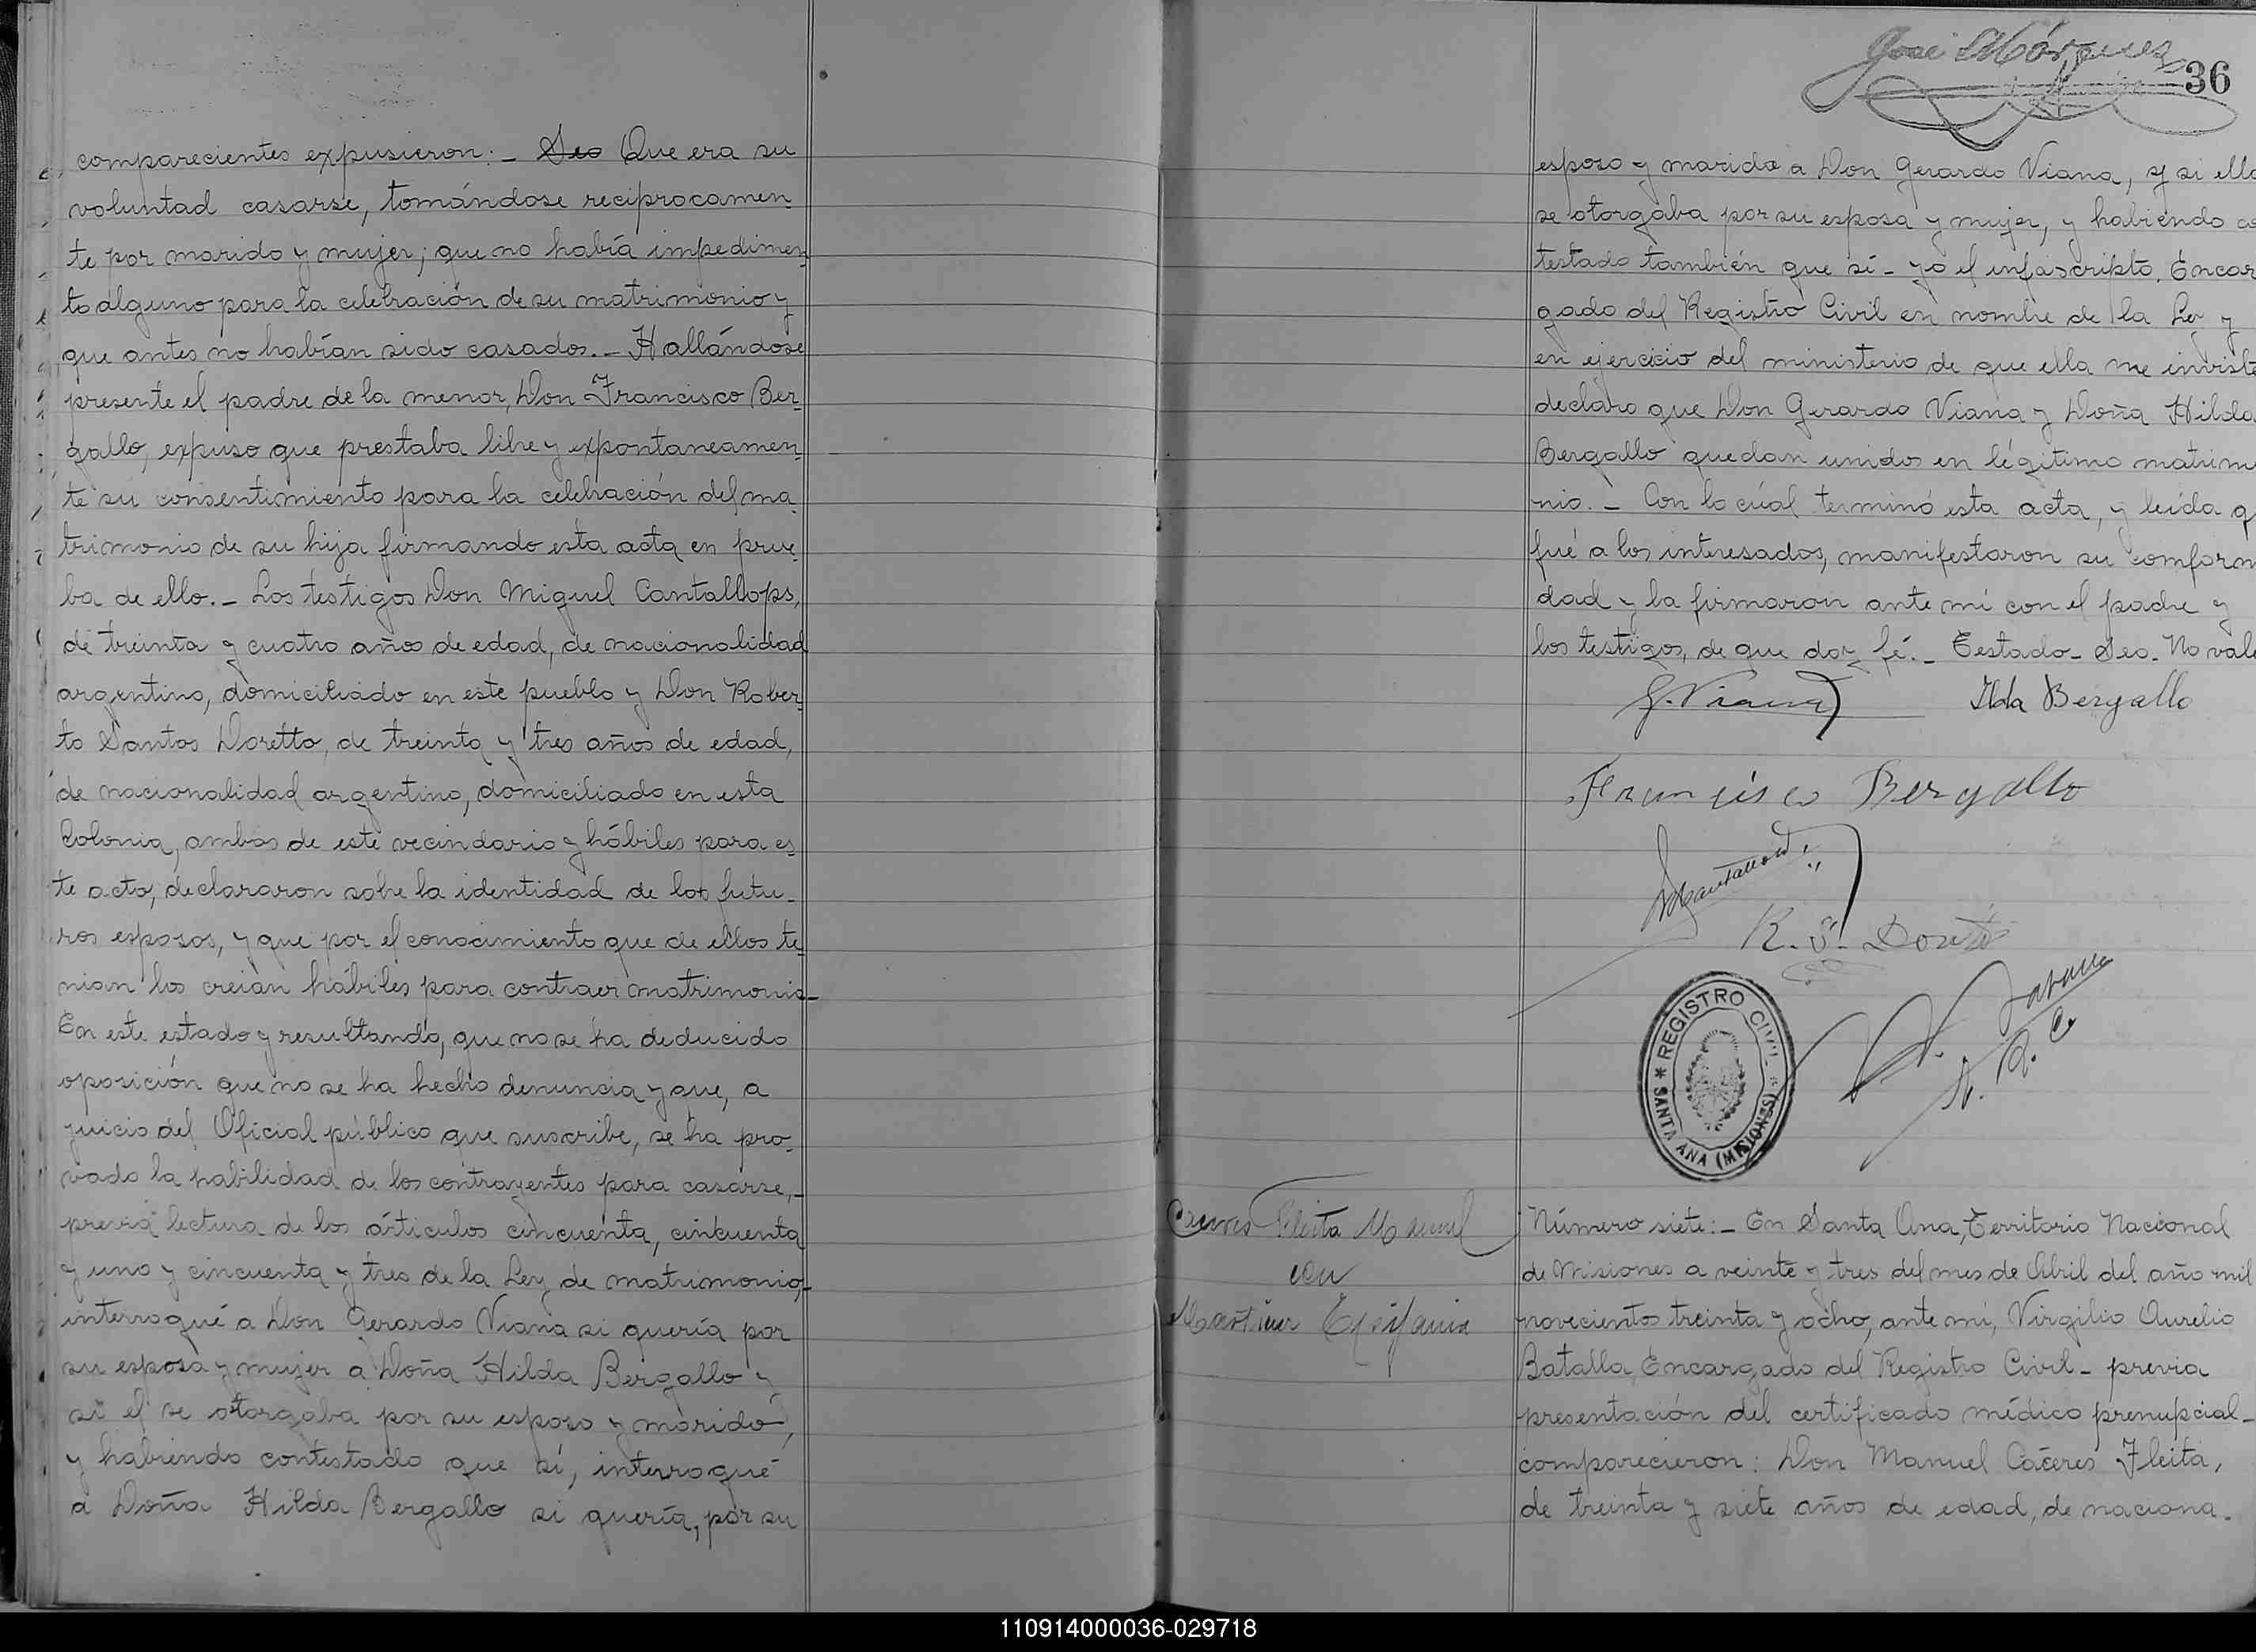 comparecientes expusieron: _ Seo Que era su
voluntad casarse, tomándose reciprocamen-
te por marido y mujer; que no había impedimen-
to alguno para la celebración de su matrimonio y
que antes no habían sido casados. _ Hallándose
presente el padre de la menor, Don Francisco Ber-
gallo, expuso que prestaba libre y expontaneamen-
te su consentimiento para la celebración del ma-
trimonio de su hija firmando esta acta en prue-
ba de ello. _ Los testigos Don Miguel Cantallops,
de treinta y cuatro años de edad, de nacionalidad
argentino, domiciliado en este pueblo y Don Rober-
to Santos Doretto, de treinta y tres años de edad,
de nacionalidad argentino, domiciliado en esta
Colonia, ambos de este vecindario y hábiles para es-
te acto, declararon sobre la identidad de los futu-
ros esposos, y que por el conocimiento que de ellos te-
nian los creian hábiles para contraer matrimonio _
En este estado y resultando, que no se ha deducido
oposición que no se ha hecho denuncia y que, a
juicio del Oficial público que suscribe, se ha pro-
vado la habilidad de los contrayentes para casarse, _
previa lectura de los articulos cincuenta, cincuenta
y uno y cincuenta y tres de la Ley de matrimonio, _
interrogué a Don Gerardo Viana si quería por
su esposa y mujer a Doña Hilda Bergallo y
si el se otorgaba por su esposo y marido,
y habiendo contestado que sí, interrogué
a Doña Hilda Bergallo si quería, por su
José Márquez
36
esposo y marido a Don Gerardo Viana, y si ella
se otorgaba por su esposa y mujer, y habiendo co
testado también que sí _ yo el infascripto. Encar
gado del Registro Civil en nombre de la Ley y
en ejercicio del ministerio de que ella me inviste
declaro que Don Gerardo Viana y Doña Hilda
Bergallo quedan unidos en légitimo matrim
nio. _ Con lo cúal terminó esta acta, y leída q
fué a los interesados, manifestaron su comform
dad y la firmaron ante mí con el padre y
los testigos, de que doy fé. _ Testado _ Seo _ No vale
G. Viana Ilda Bergallo
Francisco Bergallo
MCantallops
R. S. Doretto
REGISTRO CIVIL
SANTA ANA (MISIONES)
Caceres Fleita Manuel
con
Martinez Epifania
Número siete: _ En Santa Ana, Territorio Nacional
de Misiones a veinte y tres del mes de Abril del año mil
novecientos treinta y ocho, ante mí, Virgilio Aurelio
Batalla, Encargado del Registro Civil _ previa
presentación del certificado médico prenupcial _
comparecieron: Don Manuel Cáceres Fleita,
de treinta y siete años de edad, de naciona-
110914000036-029718